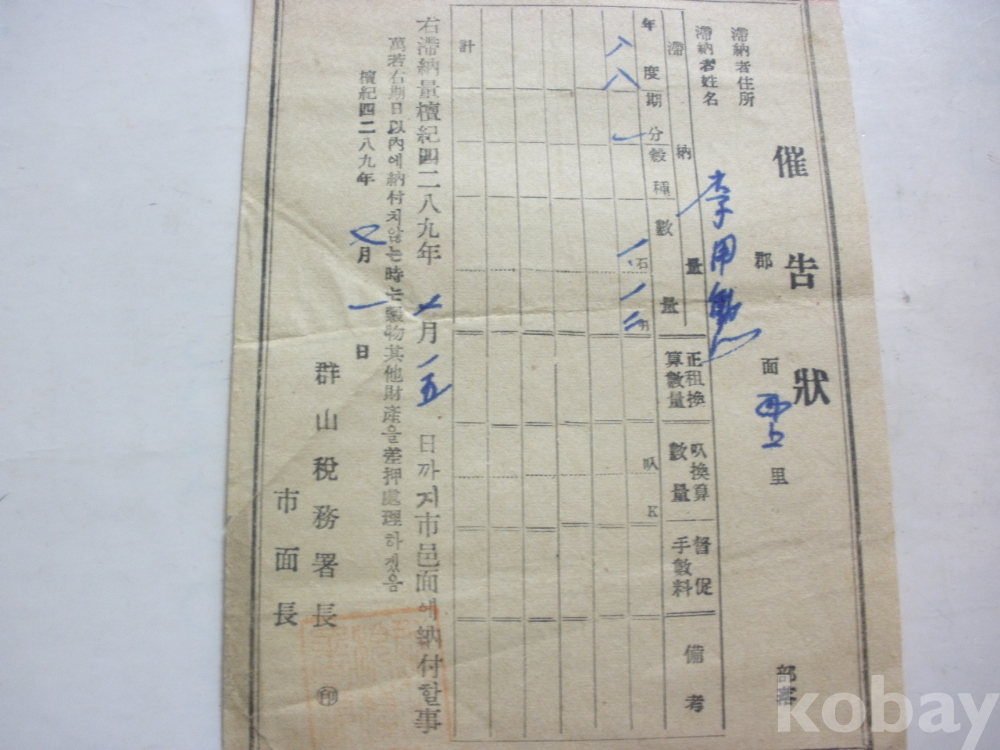 催告狀
滯納者住所 郡 面 里 部落
滯納者姓名 李用
滯納量
年度 期分 穀種 數量
正租換算數量
叺換算數量
督促手數料
備考
八八 一
石
叺 K
計
右滯納量檀紀四二八九年 月 一五 日까지市邑面에納付할事
萬若右期日以內에納付치않는時는穀物其他財產을差押處理하겠음
檀紀四二八九年 月 一 日
群山稅務署長 ㊞
市面長
kobay